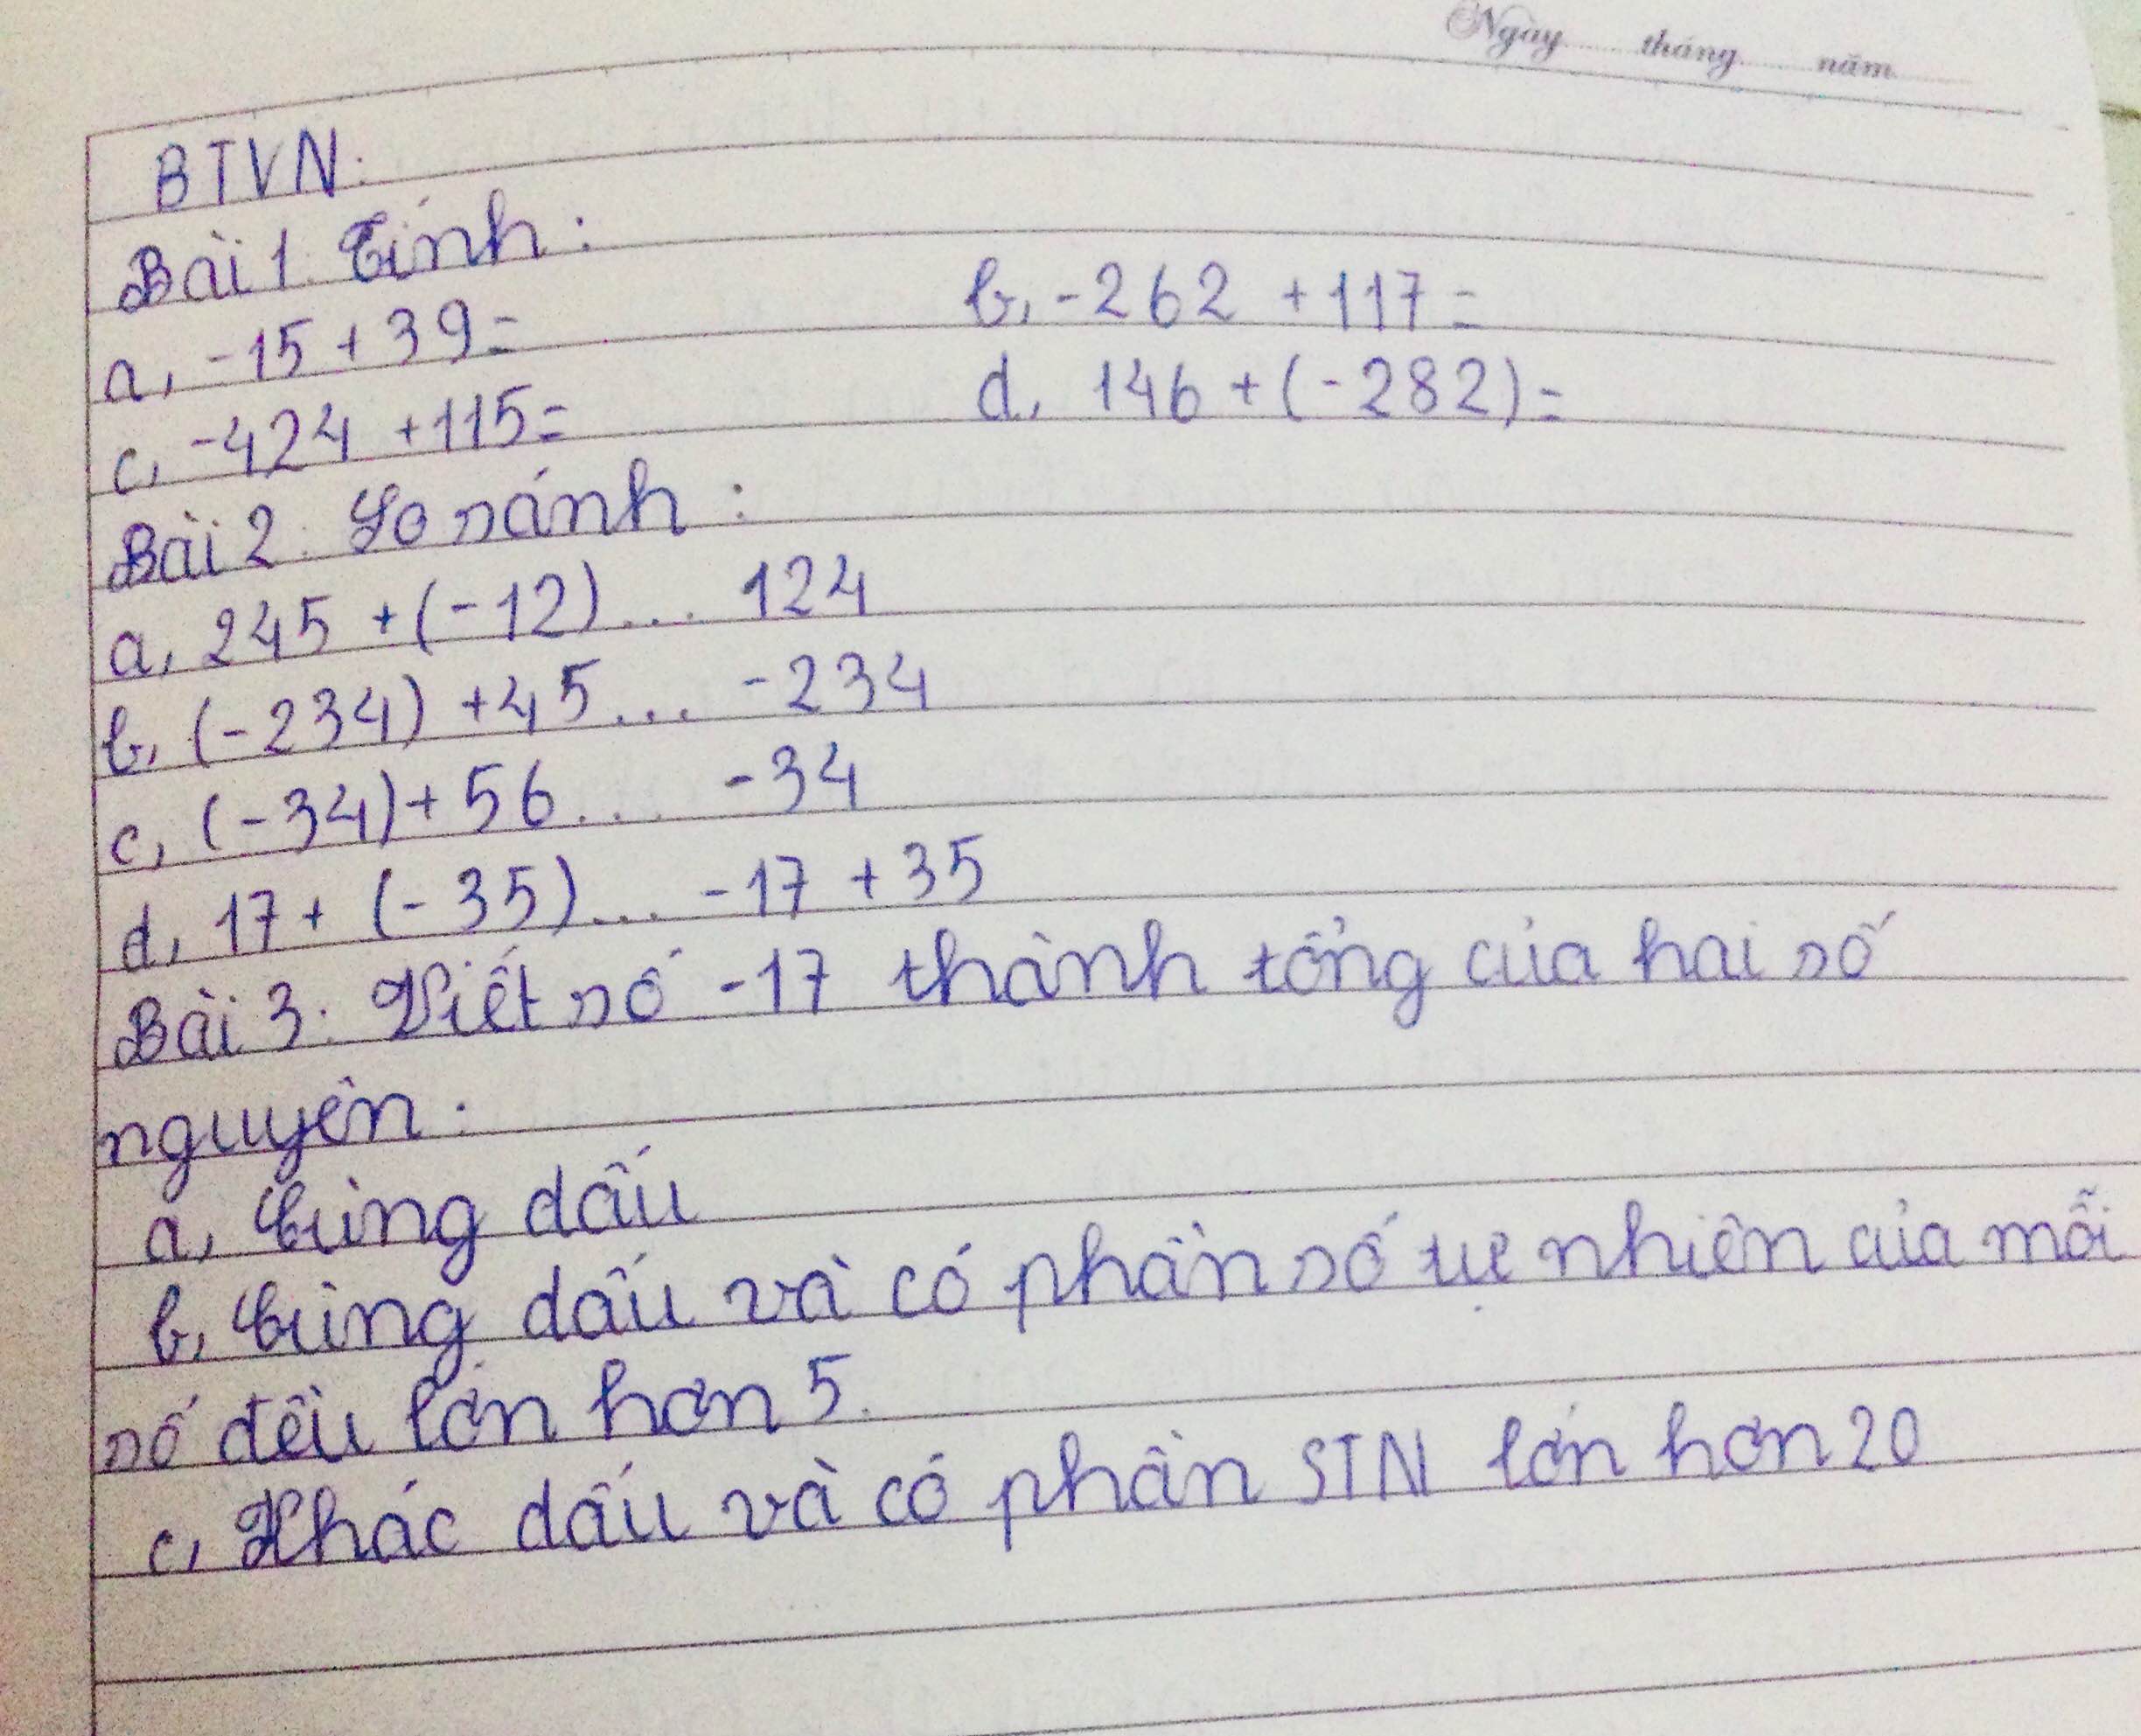 Ngày tháng năm
BTVN:
Bài 1: Tính:
a, -15 + 39 =
b, -262 + 117 =
c, -424 + 115 =
d, 146 + (-282) =
Bài 2: So sánh:
a, 245 + (-12) ... 124
b, (-234) + 45 ... -234
c, (-34) + 56 .... -34
d, 17 + (-35) ... -17 + 35
Bài 3: Viết số -17 thành tổng của hai số
nguyên:
a, Cùng dấu
b, Cùng dấu và có phần số tự nhiên của mỗi
số đều lớn hơn 5.
c, Khác dấu và có phần STN lớn hơn 20